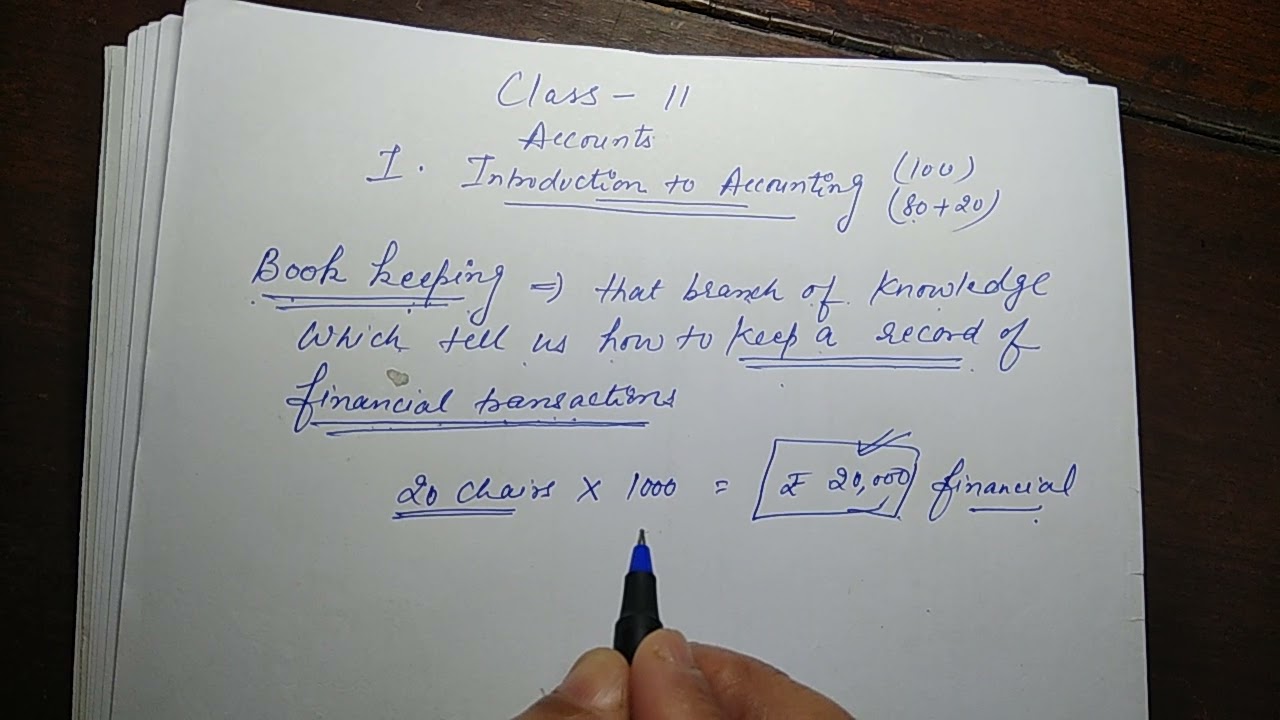 Class - 11
Accounts
I. Introduction to Accounting (100)
(80+20)
Book keeping => that branch of knowledge
Which tell us how to keep a record of
financial transactions
20 chairs × 1000 = ₹ 20,000 financial